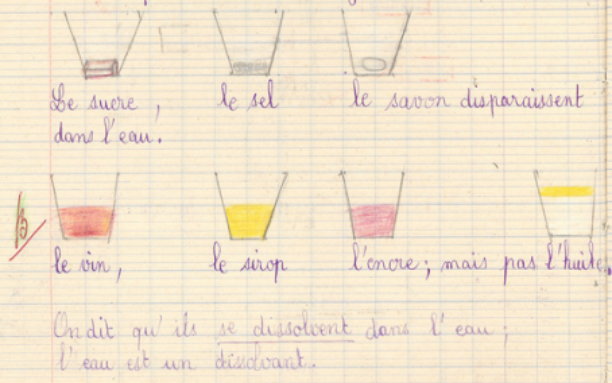 Le sucre, le sel le savon disparaissent
dans l'eau.
le vin, le sirop l'encre; mais pas l'huile.
On dit qu'ils se dissolvent dans l'eau;
l'eau est un dissolvant.